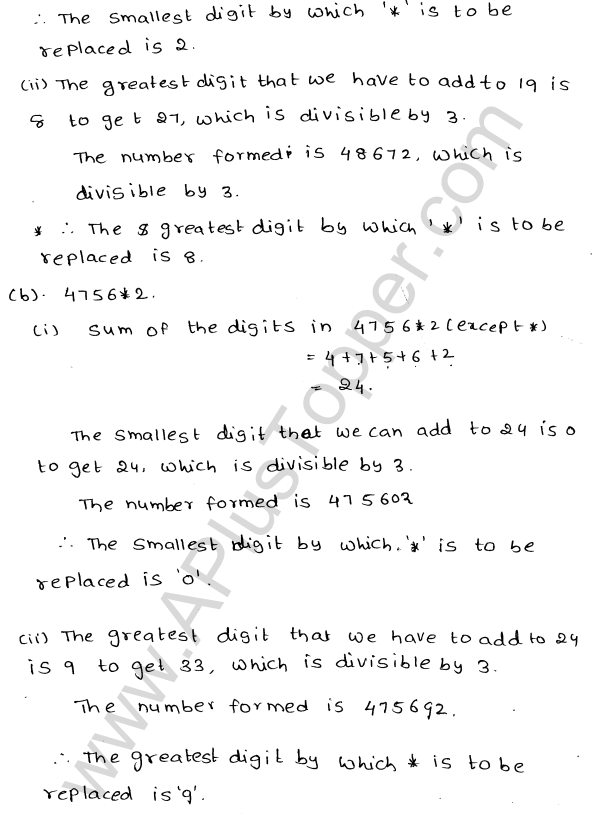 ∴ The smallest digit by which '*' is to be
replaced is 2.
(ii) The greatest digit that we have to add to 19 is
8 to get 27, which is divisible by 3.
The number formed is 48672, which is
divisible by 3.
* ∴ The 8 greatest digit by which '*' is to be
replaced is 8.
(b). 4756*2.
(i) Sum of the digits in 4756*2 (except *)
= 4+7+5+6+2
= 24.
The smallest digit that we can add to 24 is 0
to get 24, which is divisible by 3.
The number formed is 475602
∴ The smallest digit by which '*' is to be
replaced is '0'.
(ii) The greatest digit that we have to add to 24
is 9 to get 33, which is divisible by 3.
The number formed is 475692.
∴ The greatest digit by which * is to be
replaced is '9'.
www.APlusTopper.com